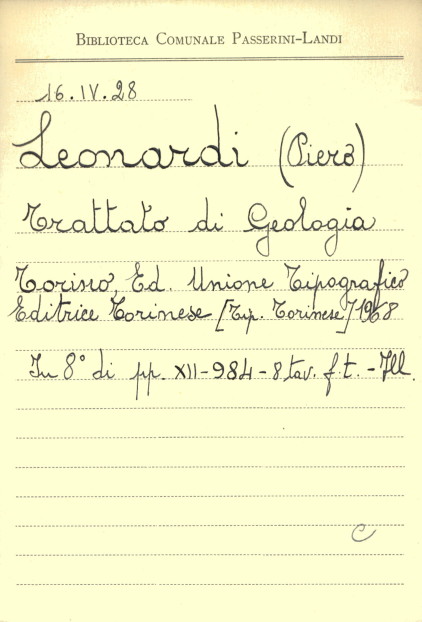 BIBLIOTECA COMUNALE PASSERINI-LANDI
16.IV.28
Leonardi (Piero)
Trattato di Geologia
Torino, Ed. Unione Tipografico
Editrice Torinese [Tip. Torinese] 1968
In 8° di pp. XII-984-8 tav. f.t. - Ill.
C